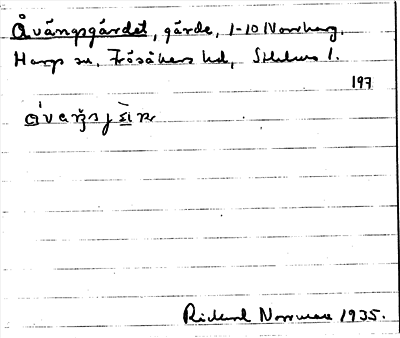 Åvängsgärdet, gärde, 1-10 Norrharg,
Hargs sn, Frösåkers hd, Sthlms l.
197
Richard Norrman 1935.